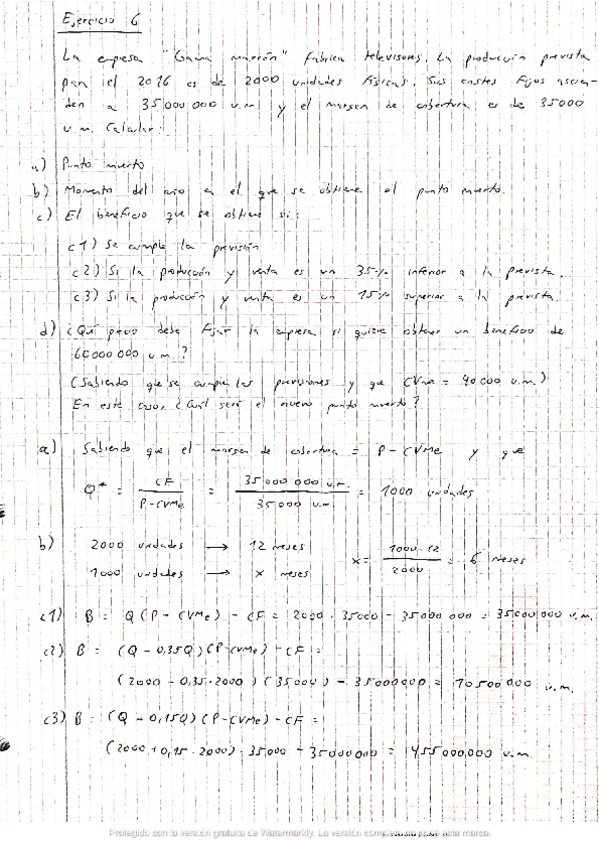 Ejercicio 6
La empresa "Gama marrón" fabrica televisores. La producción prevista
para el 2016 es de 2000 unidades físicas. Sus costes fijos ascien-
den a 35000000 u.m y el margen de cobertura es de 35000
u.m. Calcular:
a) Punto muerto
b) Momento del año en el que se obtiene el punto muerto.
c) El beneficio que se obtiene si:
c1) Se cumple la previsión
c2) Si la producción y venta es un 35% inferior a la prevista.
c3) Si la producción y venta es un 15% superior a la prevista.
d) ¿Qué precio debe fijar la empresa si quiere obtener un beneficio de
60000000 u.m?
(Sabiendo que se cumplen las previsiones y que CVme = 40.000 u.m.)
En este caso, ¿Cuál será el nuevo punto muerto?
a) Sabiendo que el margen de cobertura = P - CVMe y que
Q* = CF / P-CVMe = 35 000 000 u.m / 35 000 u.m = 1000 unidades
b) 2000 unidades → 12 meses
1000 unidades → x meses
x = 1000·12 / 2000 = 6 meses
c1) B = Q (P - CVMe) - CF = 2000 · 35000 - 35 000 000 = 35000000 u.m.
c2) B = (Q - 0,35Q)(P-CVMe) - CF =
(2000 - 0,35·2000) (35000) - 35000000 = 10500000 u.m.
c3) B = (Q - 0,15Q) (P-CVMe) - CF =
(2000 + 0,15 · 2000) · 35000 - 35000000 = 455000000 u.m.
Protegido con la versión gratuita de Watermarkly. La versión completa no pone esta marca.